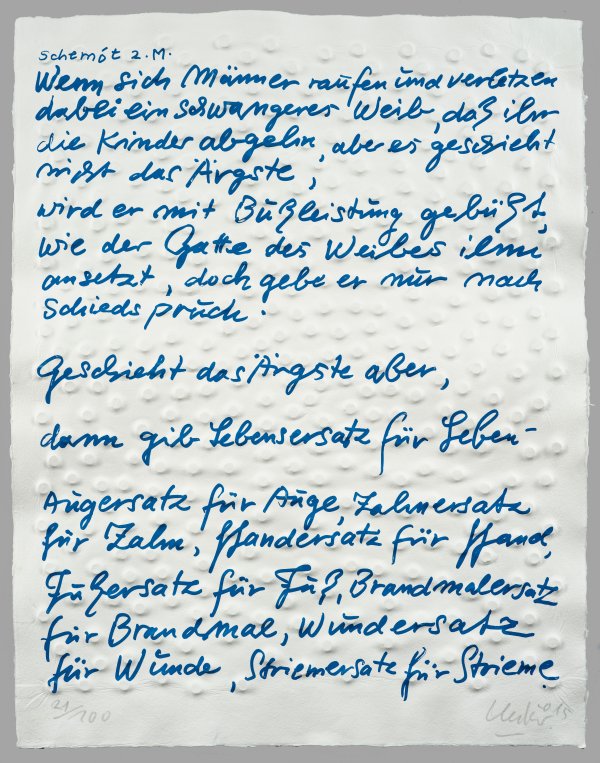 Schemót 2. M.
Wenn sich Männer raufen und verletzen
dabei ein schwangeres Weib, daß ihr
die Kinder abgehn, aber es geschieht
nicht das Ärgste,
wird er mit Bußleistung gebüßt,
wie der Gatte des Weibes ihm
ansetzt, doch gebe er nur nach
Schiedspruch.
Geschieht das Ärgste aber,
dann gib Lebensersatz für Leben-
Augersatz für Auge, Zahnersatz
für Zahn, Handersatz für Hand,
Fußersatz für Fuß, Brandmalersatz
für Brandmal, Wundersatz
für Wunde, Striemersatz für Strieme.
21/100
Uecker 015